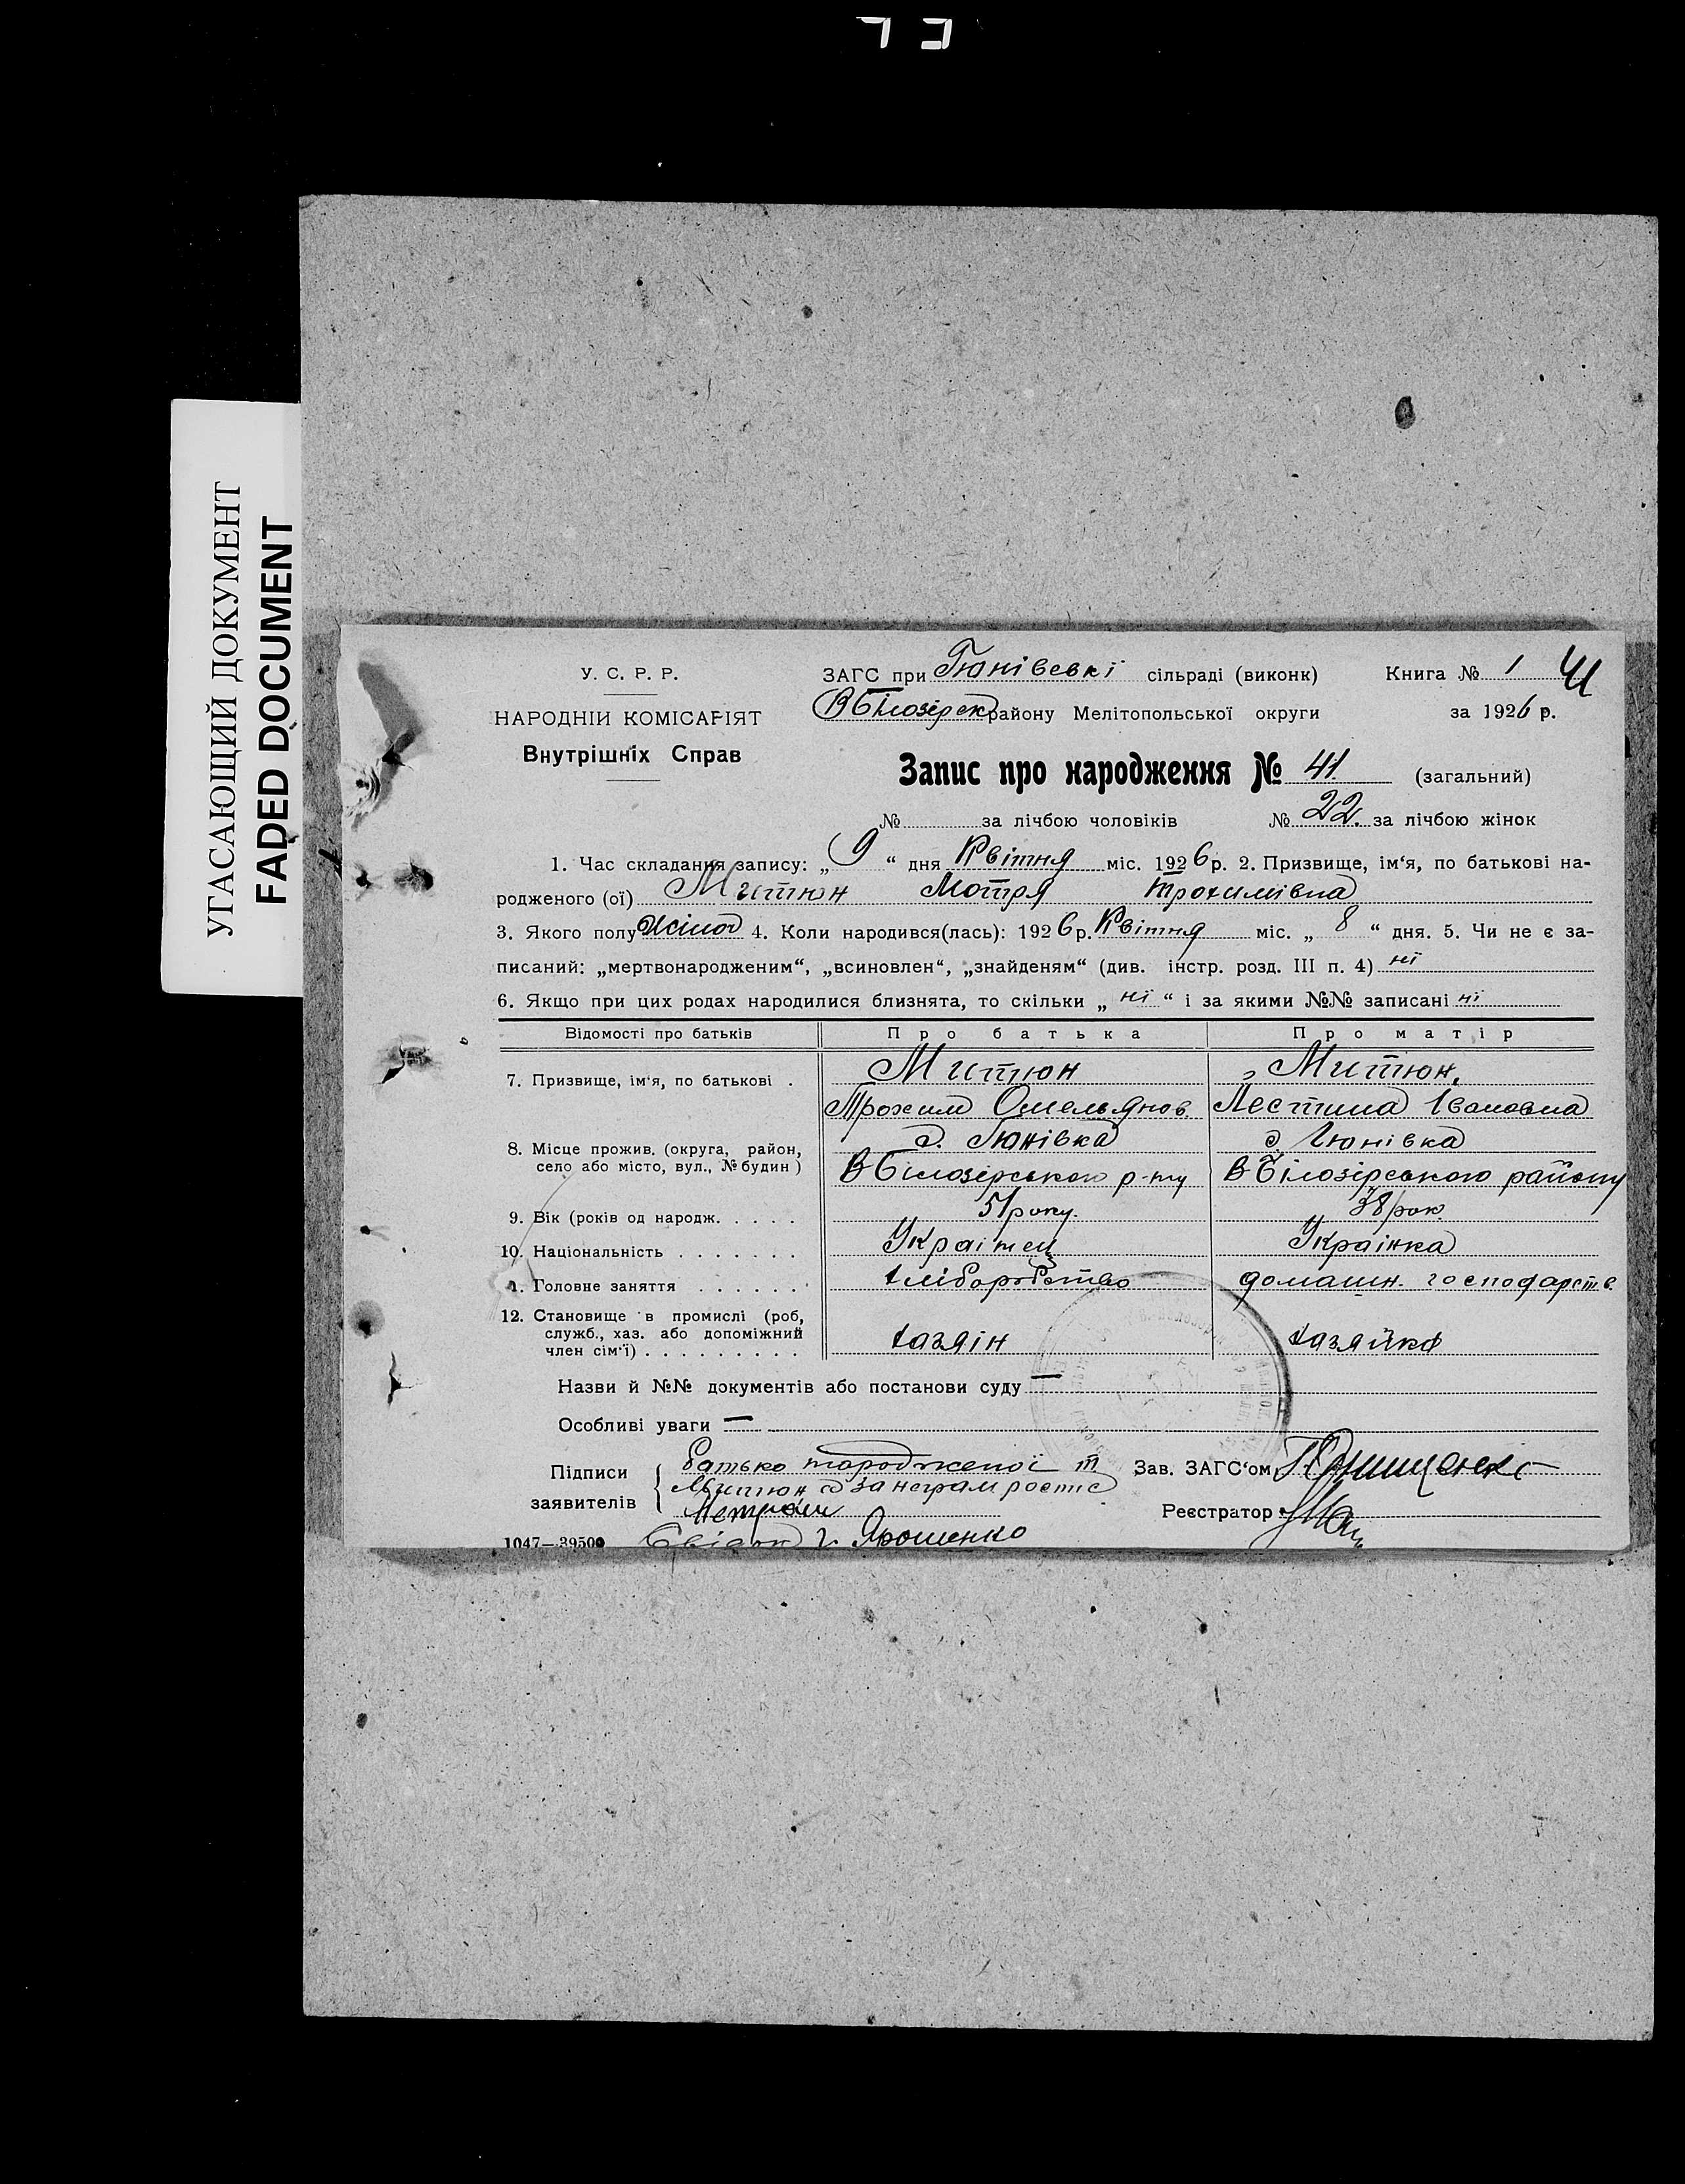 УГАСАЮЩИЙ ДОКУМЕНТ
FADED DOCUMENT
У. С. Р. Р.
НАРОДНІЙ КОМІСАРІЯТ
Внутрішніх Справ
ЗАГС при Гюнівській сільраді (виконк) Книга № 1 41
В Білозірськ району Мелітопольської округи за 1926 р.
Запис про народження № 41. (загальний)
№ за лічбою чоловіків № 22. за лічбою жінок
1. Час складання запису: „ 9 “ дня Квітня міс. 1926 р. 2. Призвище, ім‘я, по батькові на-
родженого (ої) Митюн Мотря Трохимівна
3. Якого полу жіноч 4. Коли народився(лась): 1926 р. Квітня міс. „ 8 “ дня. 5. Чи не є за-
писаний: „мертвонародженим“, „всиновлен“, „знайденям“ (див. інстр. розд. III п. 4) ні
6. Якщо при цих родах народилися близнята, то скільки „ ні “ і за якими №№ записані ні
Відомості про батьків Про батька Про матір
7. Призвище, ім‘я, по батькові . Митюн Митюн,
Трохим Омельянов. Лестина Івановна
8. Місце прожив. (округа, район, село або місто, вул., № будин) с. Гюнівка с. Гюнівка
В Білозірського р-ну В Білозірського району
9. Вік (років од народж. . . . . 51 року. 38 рок.
10. Національність . . . . . . . Украінец Украінка
11. Головне заняття . . . . . . хліборобство домашн. господарств.
12. Становище в промислі (роб,
служб., хаз. або допоміжний
член сім‘ї) . . . . . . . . . хазяін хазяйка
Назви й №№ документів або постанови суду —
Особливі уваги —
Підписи заявителів Батько народженоі Т
Митюн а за неграм ростис
Зав. ЗАГС‘ом
Реєстратор
1047—39500 Свідок г. Ярошенко